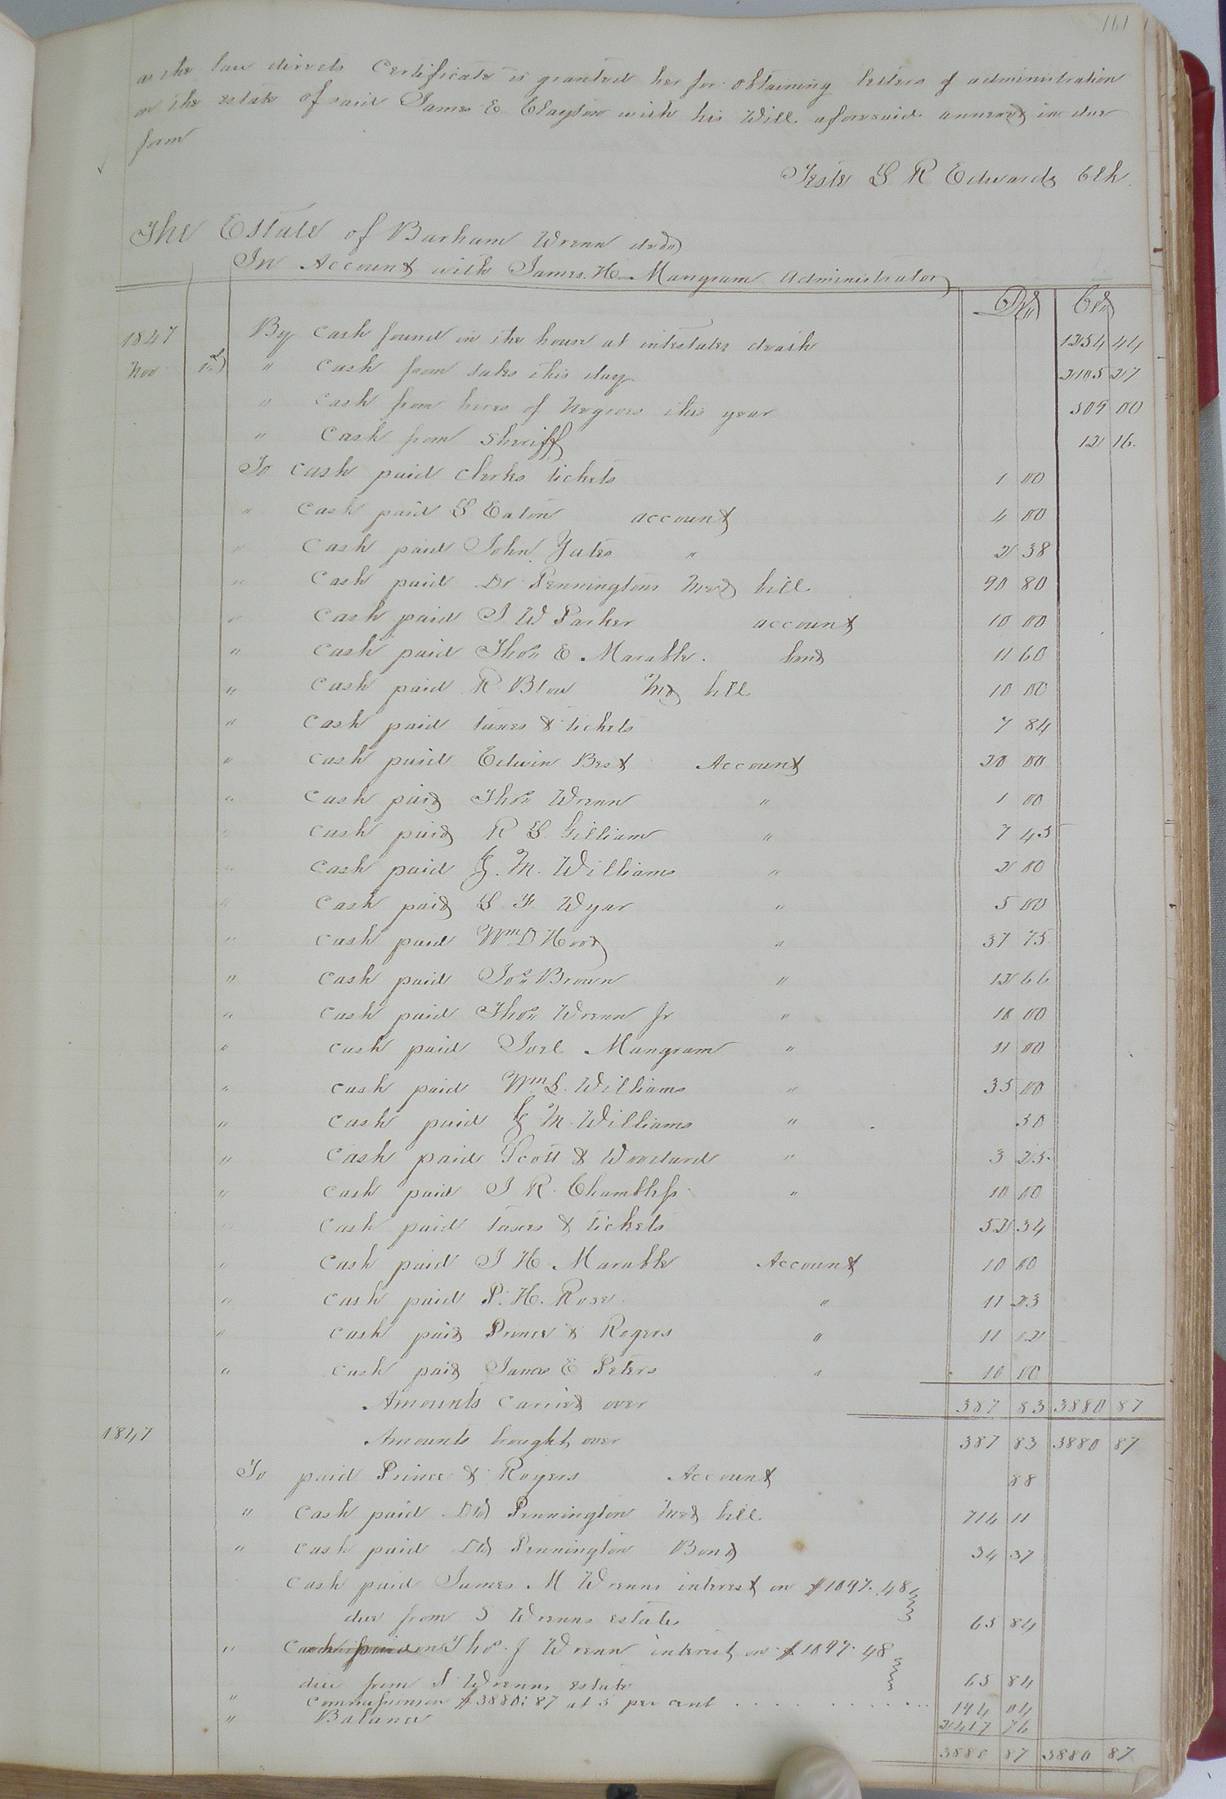 161
as the law directs Certificate is granted her for obtaining letters of administration
on the estate of said James E Clayton with his Will aforesaid annexed in due
form
Teste L R Edwards Clk
The Estate of Barham Wrenn decd
In Account with James H Mangram Administrator
Drs Crs
1847 By Cash found in the house at intestates death 1254 44
Nov " Cash from sales this day 2105 27
" Cash from hires of Negroes this year 509 00
" Cash from Sheriff 12 16
To cash paid clerks tickets 1 00
" Cash paid L Eaton account 4 00
" Cash paid John Yates " 2 38
" Cash paid Dr Penningtons Med bill 90 80
" Cash paid J W Parker account 10 00
" Cash paid Thos E Marable 11 60
" Cash paid R Blow Med bill 10 00
" Cash paid taxes & tickets 7 84
" Cash paid Edwin Best Account 20 00
" Cash paid Thos Wrenn " 1 00
" Cash paid R S Gilliam " 7 45
" Cash paid G. M. Williams " 2 00
" Cash paid L F Wyar " 5 00
" Cash paid Wm D Hood " 37 75
" Cash paid Jos Brown " 12 66
" Cash paid Thos Wrenn Jr " 18 00
" Cash paid Joel Mangram " 00
" Cash paid Wm L. Williams " 35 00
" Cash paid G M Williams " 50
" Cash paid Scott & Woodard " 3 25
" Cash paid J R Chambliss " 10 00
" Cash paid taxes & tickets 52 34
" Cash paid J H Marable Account 10 00
" Cash paid P. H. Rose " 11 23
" Cash paid Prince & Rogers " 11 12
" Cash paid James E Peters " 10 00
Amounts Carried over 387 83 3880 87
1847 Amounts brought over 387 83 3880 87
To paid Prince & Rogers Account 88
" Cash paid Dr Pennington Med bill 714 11
" Cash paid Dr Pennington Bond 34 37
Cash paid James M Wrenn interest on $1097.48
due from S Wrenns estate 65 84
" Cash paid on Thos. J Wrenn interest on $1097.48
due from S Wrenns estate 65 84
" Commission on $3880:87 at 5 per cent 194 04
" Balance 2417 76
3880 87 3880 87